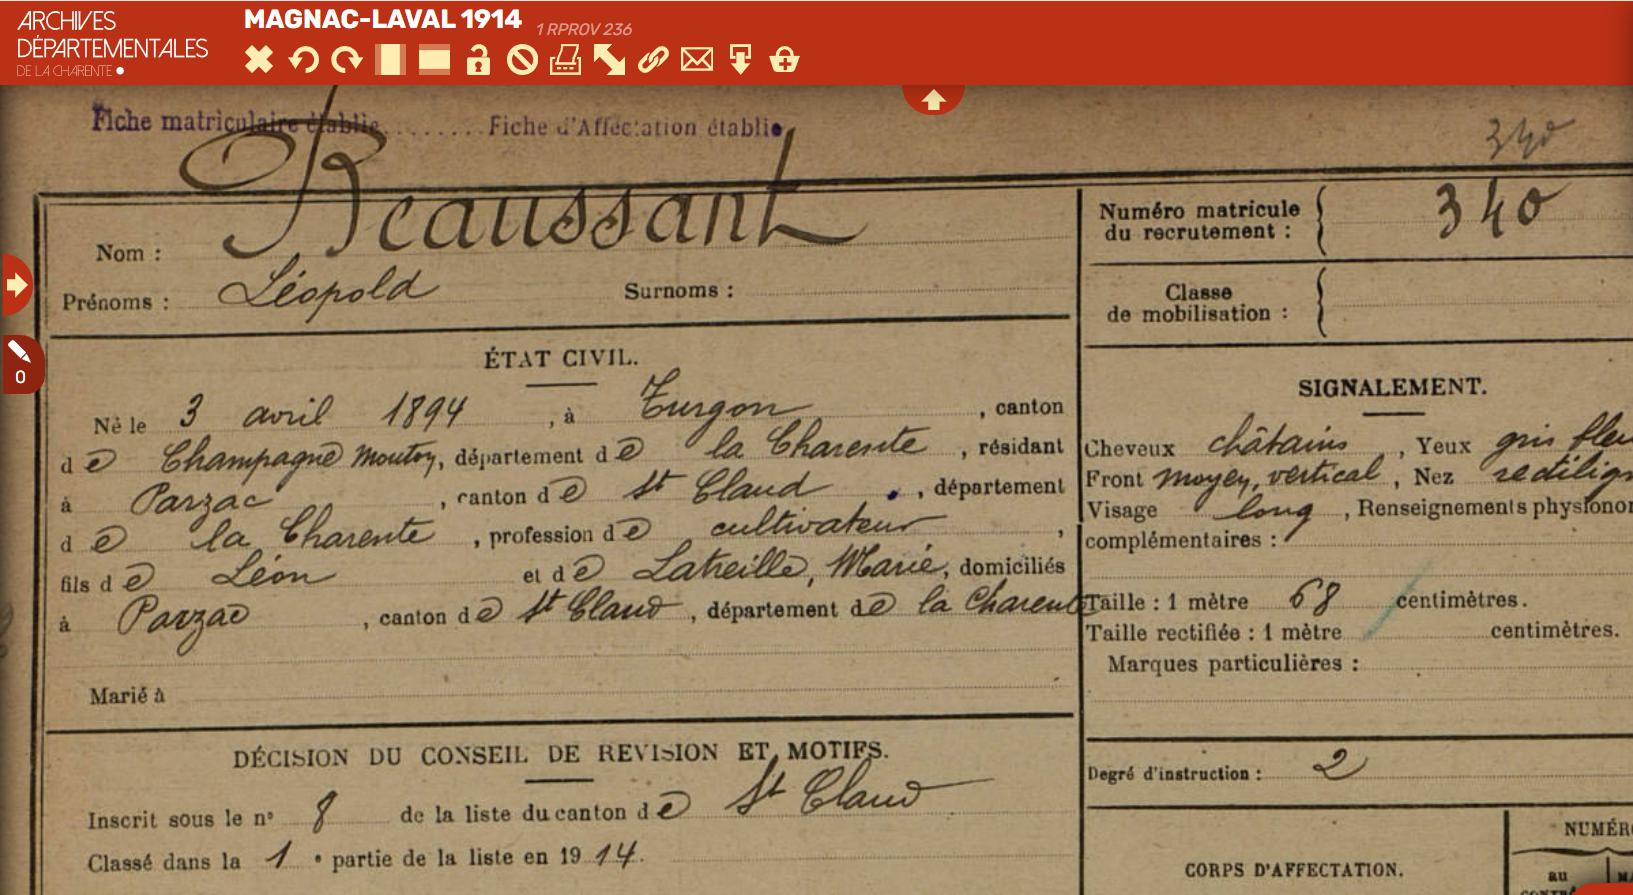 ARCHIVES
DÉPARTEMENTALES
DE LA CHARENTE
MAGNAC-LAVAL 1914 1 RPROV 236
Fiche matriculaire établie ........ Fiche d'Affectation établie
340
Nom : Beaussant
Prénoms : Léopold Surnoms :
Numéro matricule
du recrutement : 340
Classe
de mobilisation :
ÉTAT CIVIL.
Né le 3 avril 1894, à Turgon, canton
de Champagne Mouton, département de la Charente, résidant
à Parzac, canton de St Claud, département
de la Charente, profession de cultivateur,
fils de Léon et de Latreille, Marie, domiciliés
à Parzac, canton de St Claud, département de la Charente
Marié à
SIGNALEMENT.
Cheveux châtains, Yeux gris bleu
Front moyen, vertical, Nez rectilign
Visage long, Renseignements physionom
complémentaires :
Taille : 1 mètre 68 centimètres.
Taille rectifiée : 1 mètre centimètres.
Marques particulières :
Degré d'instruction : 2
DÉCISION DU CONSEIL DE REVISION ET MOTIFS.
Inscrit sous le n° 8 de la liste du canton de St Claud
Classé dans la 1e partie de la liste en 1914.
CORPS D'AFFECTATION.
NUMÉRO
au
0